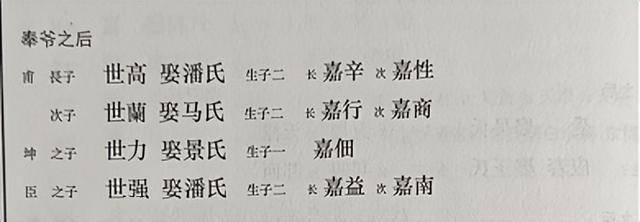 奉爷之后
甯 長子 世高 娶潘氏 生子二 长 嘉辛 次 嘉性
次子 世蘭 娶马氏 生子二 长 嘉行 次 嘉商
坤 之子 世力 娶景氏 生子一 嘉佃
臣 之子 世强 娶潘氏 生子二 长 嘉益 次 嘉南